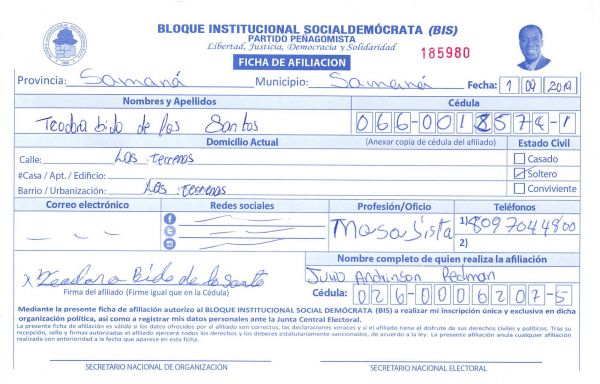 BLOQUE INSTITUCIONAL SOCIALDEMÓCRATA (BIS)
PARTIDO PEÑAGOMISTA
Libertad, Justicia, Democracia y Solidaridad
FICHA DE AFILIACION
185980
Provincia: Samaná Municipio: Samaná Fecha: 1 09 2019
Nombres y Apellidos Cédula
Teodora bido de los Santos 066-0018574-1
Domicilio Actual (Anexar copia de cédula del afiliado) Estado Civil
Calle: Las terrenas Casado
#Casa / Apt. / Edificio: Soltero
Barrio / Urbanización: Las terrenas Conviviente
Correo electrónico Redes sociales Profesión/Oficio Teléfonos
- - - Masajista 1) 8097044800
2)
Nombre completo de quien realiza la afiliación
x Teodora Bido de los Santo Julio Redman
Firma del afiliado (Firme igual que en la Cédula) Cédula: 026-0006207-5
Mediante la presente ficha de afiliación autorizo al BLOQUE INSTITUCIONAL SOCIAL DEMÓCRATA (BIS) a realizar mi inscripción única y exclusiva en dicha
organización política, así como a registrar mis datos personales ante la Junta Central Electoral.
La presente ficha de afiliación es válida si los datos ofrecidos por el afiliado son correctos, las declaraciones veraces y si el afiliado tiene el disfrute de sus derechos civiles y políticos. Tras su
recepción, sello y firmas autorizadas el afiliado ejercerá todos los derechos y los deberes estatutariamente sancionados, de acuerdo a la ley. La presente afiliación anula cualquier afiliación
realizada con anterioridad a la fecha que aparece en esta ficha.
SECRETARIO NACIONAL DE ORGANIZACIÓN SECRETARIO NACIONAL ELECTORAL